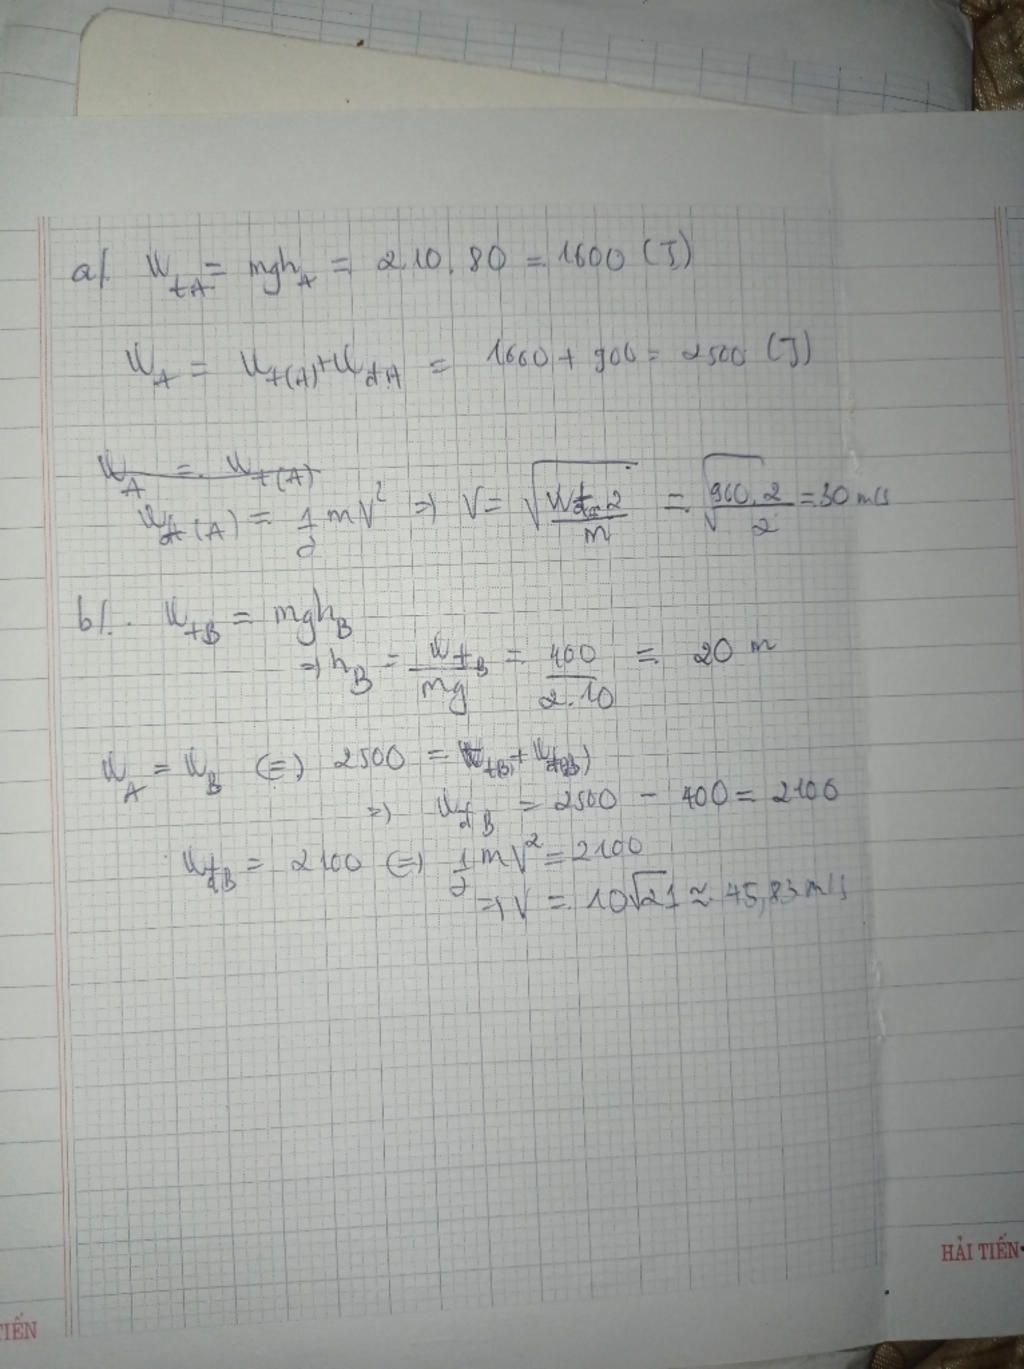 a/. W_tA = mgh_A = 2.10.80 = 1600 (J)
W_A = W_t(A) + W_đA = 1600 + 900 = 2500 (J)
W_A = W_t(A)
W_đ(A) = 1/2 mV² => V = √(W_đ.2/m) = √(900.2/2) = 30 m/s
b/. W_tB = mgh_B
=> h_B = W_tB/mg = 400/2.10 = 20 m
W_A = W_B (=) 2500 = W_tB + W_đ(B)
=> W_đB = 2500 - 400 = 2100
W_đB = 2100 (=) 1/2 mV² = 2100
=> V = 10√21 ≈ 45,83 m/s
HẢI TIẾN
TIẾN